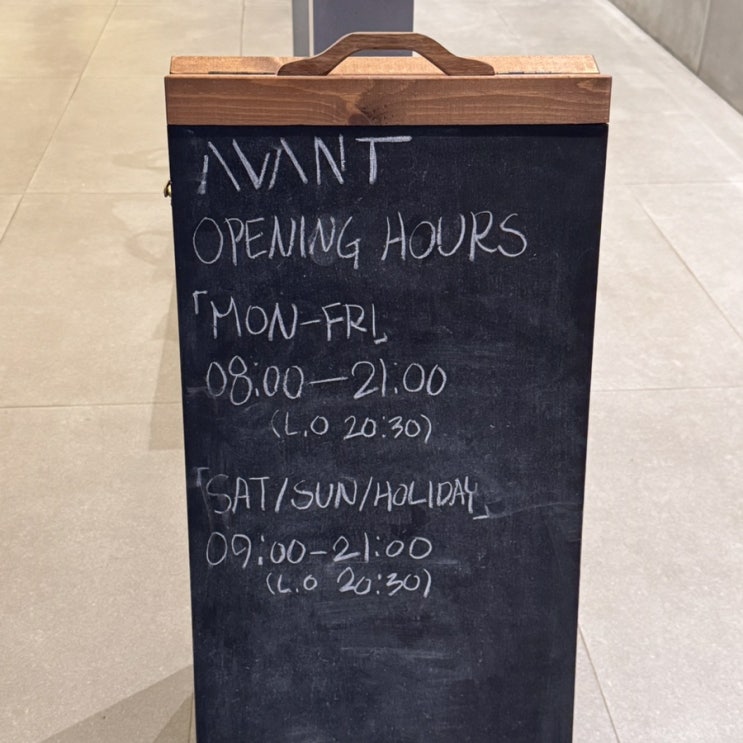 AVANT
OPENING HOURS
「MON-FRI」
08:00—21:00
(L.O 20:30)
「SAT/SUN/HOLIDAY」
09:00-21:00
(L.O 20:30)